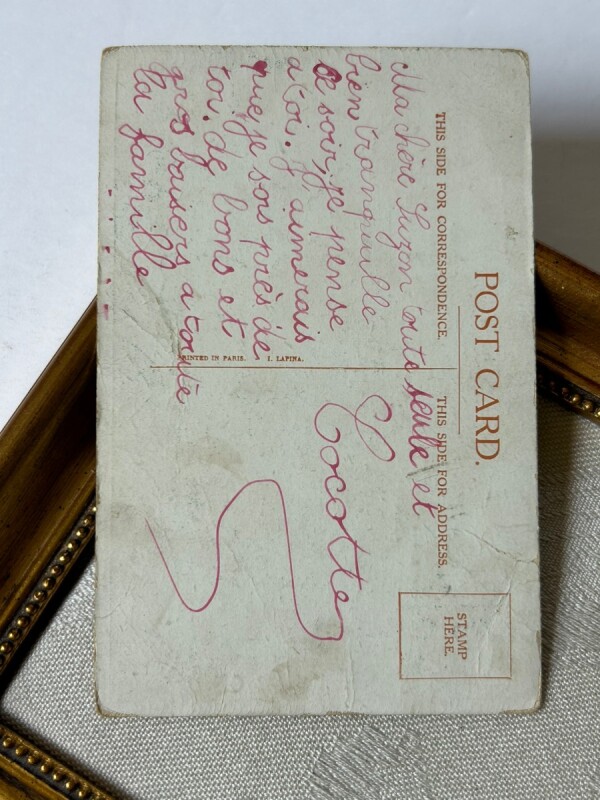 POST CARD.
THIS SIDE FOR CORRESPONDENCE.
THIS SIDE FOR ADDRESS.
STAMP
HERE.
Ma chère Suzon toute seule et
bien tranquille
ce soir, je pense
a toi. J'aimerais
que je sos près de
toi. de bons et
gros baisers a toute
la famille
Cocotte
PRINTED IN PARIS. I. LAPINA.